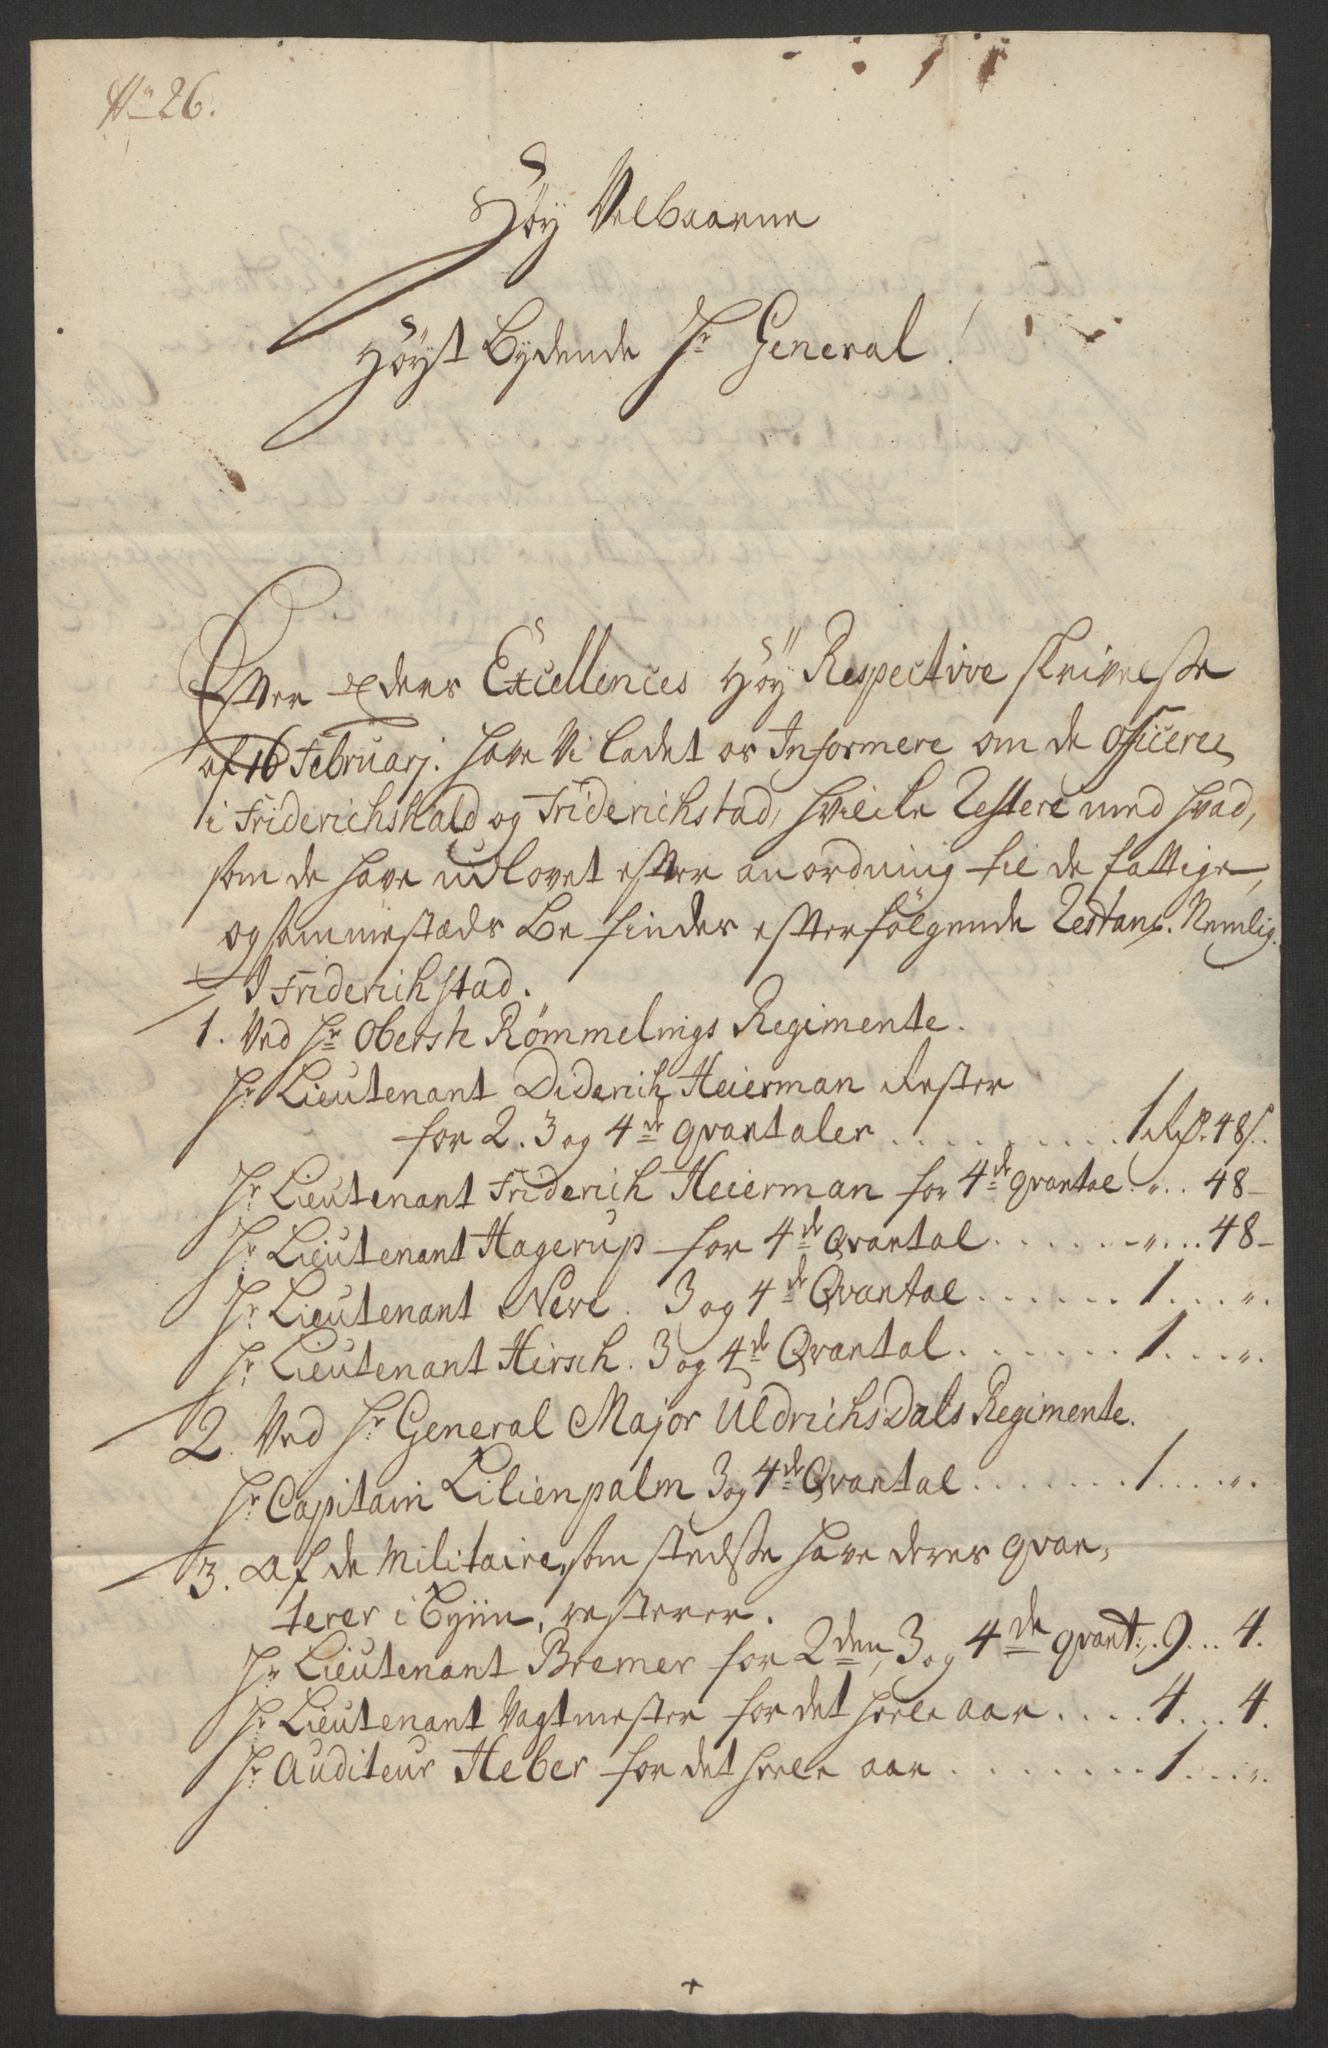 No 26.
Høy Velbaarne
Høyst Bydende Hr General!
Efter Eders Excellences Høy Respective skrivelse
af 16 Februarj. have Vi ladet os Informere om de Officerer
i Friderichshald og Friderichstad, hvilcke Restere med hvad,
som de have udlovet efter anordning til de fattige,
og sammestæds Befindes efterfølgende Restans. Nemlig.
I Friderichstad.
1. Ved Hr Oberste Rømmelings Regimente.
Hr Lieutenant Diderich Heierman Rester
for 2. 3 og 4de qvartaler . . . . . . . . . 1 Rd. 48 s.
Hr Lieutenant Friderich Heierman for 4de qvartal . „ . . 48 -
Hr Lieutenant Hagerup for 4de Qvartal . . . . . . - „ . . . 48 -
Hr Lieutenant Nere. 3 og 4de Qvartal . . . . . . 1 . . . „.
Hr Lieutenant Hirsch. 3 og 4de Qvartal . . . . . . . 1 . . . „.
2. Ved Hr General Major Uldrichsdals Regimente.
Hr Capitain Lilienpalm 3 og 4de Qvartal . . . . . . . 1 . . . . „.
3. Af de Militaire, som stedse have deres qvar-
terer i Byen, resterer.
Hr Lieutenant Bremer for 2den, 3 og 4de qvart: . 9 . . . 4.
Hr Lieutenant Vagtmester for det heele aar . . . . 4 . . . 4.
Hr Auditeur Heber for det heele aar . . . . . . . . 1 . . . „.